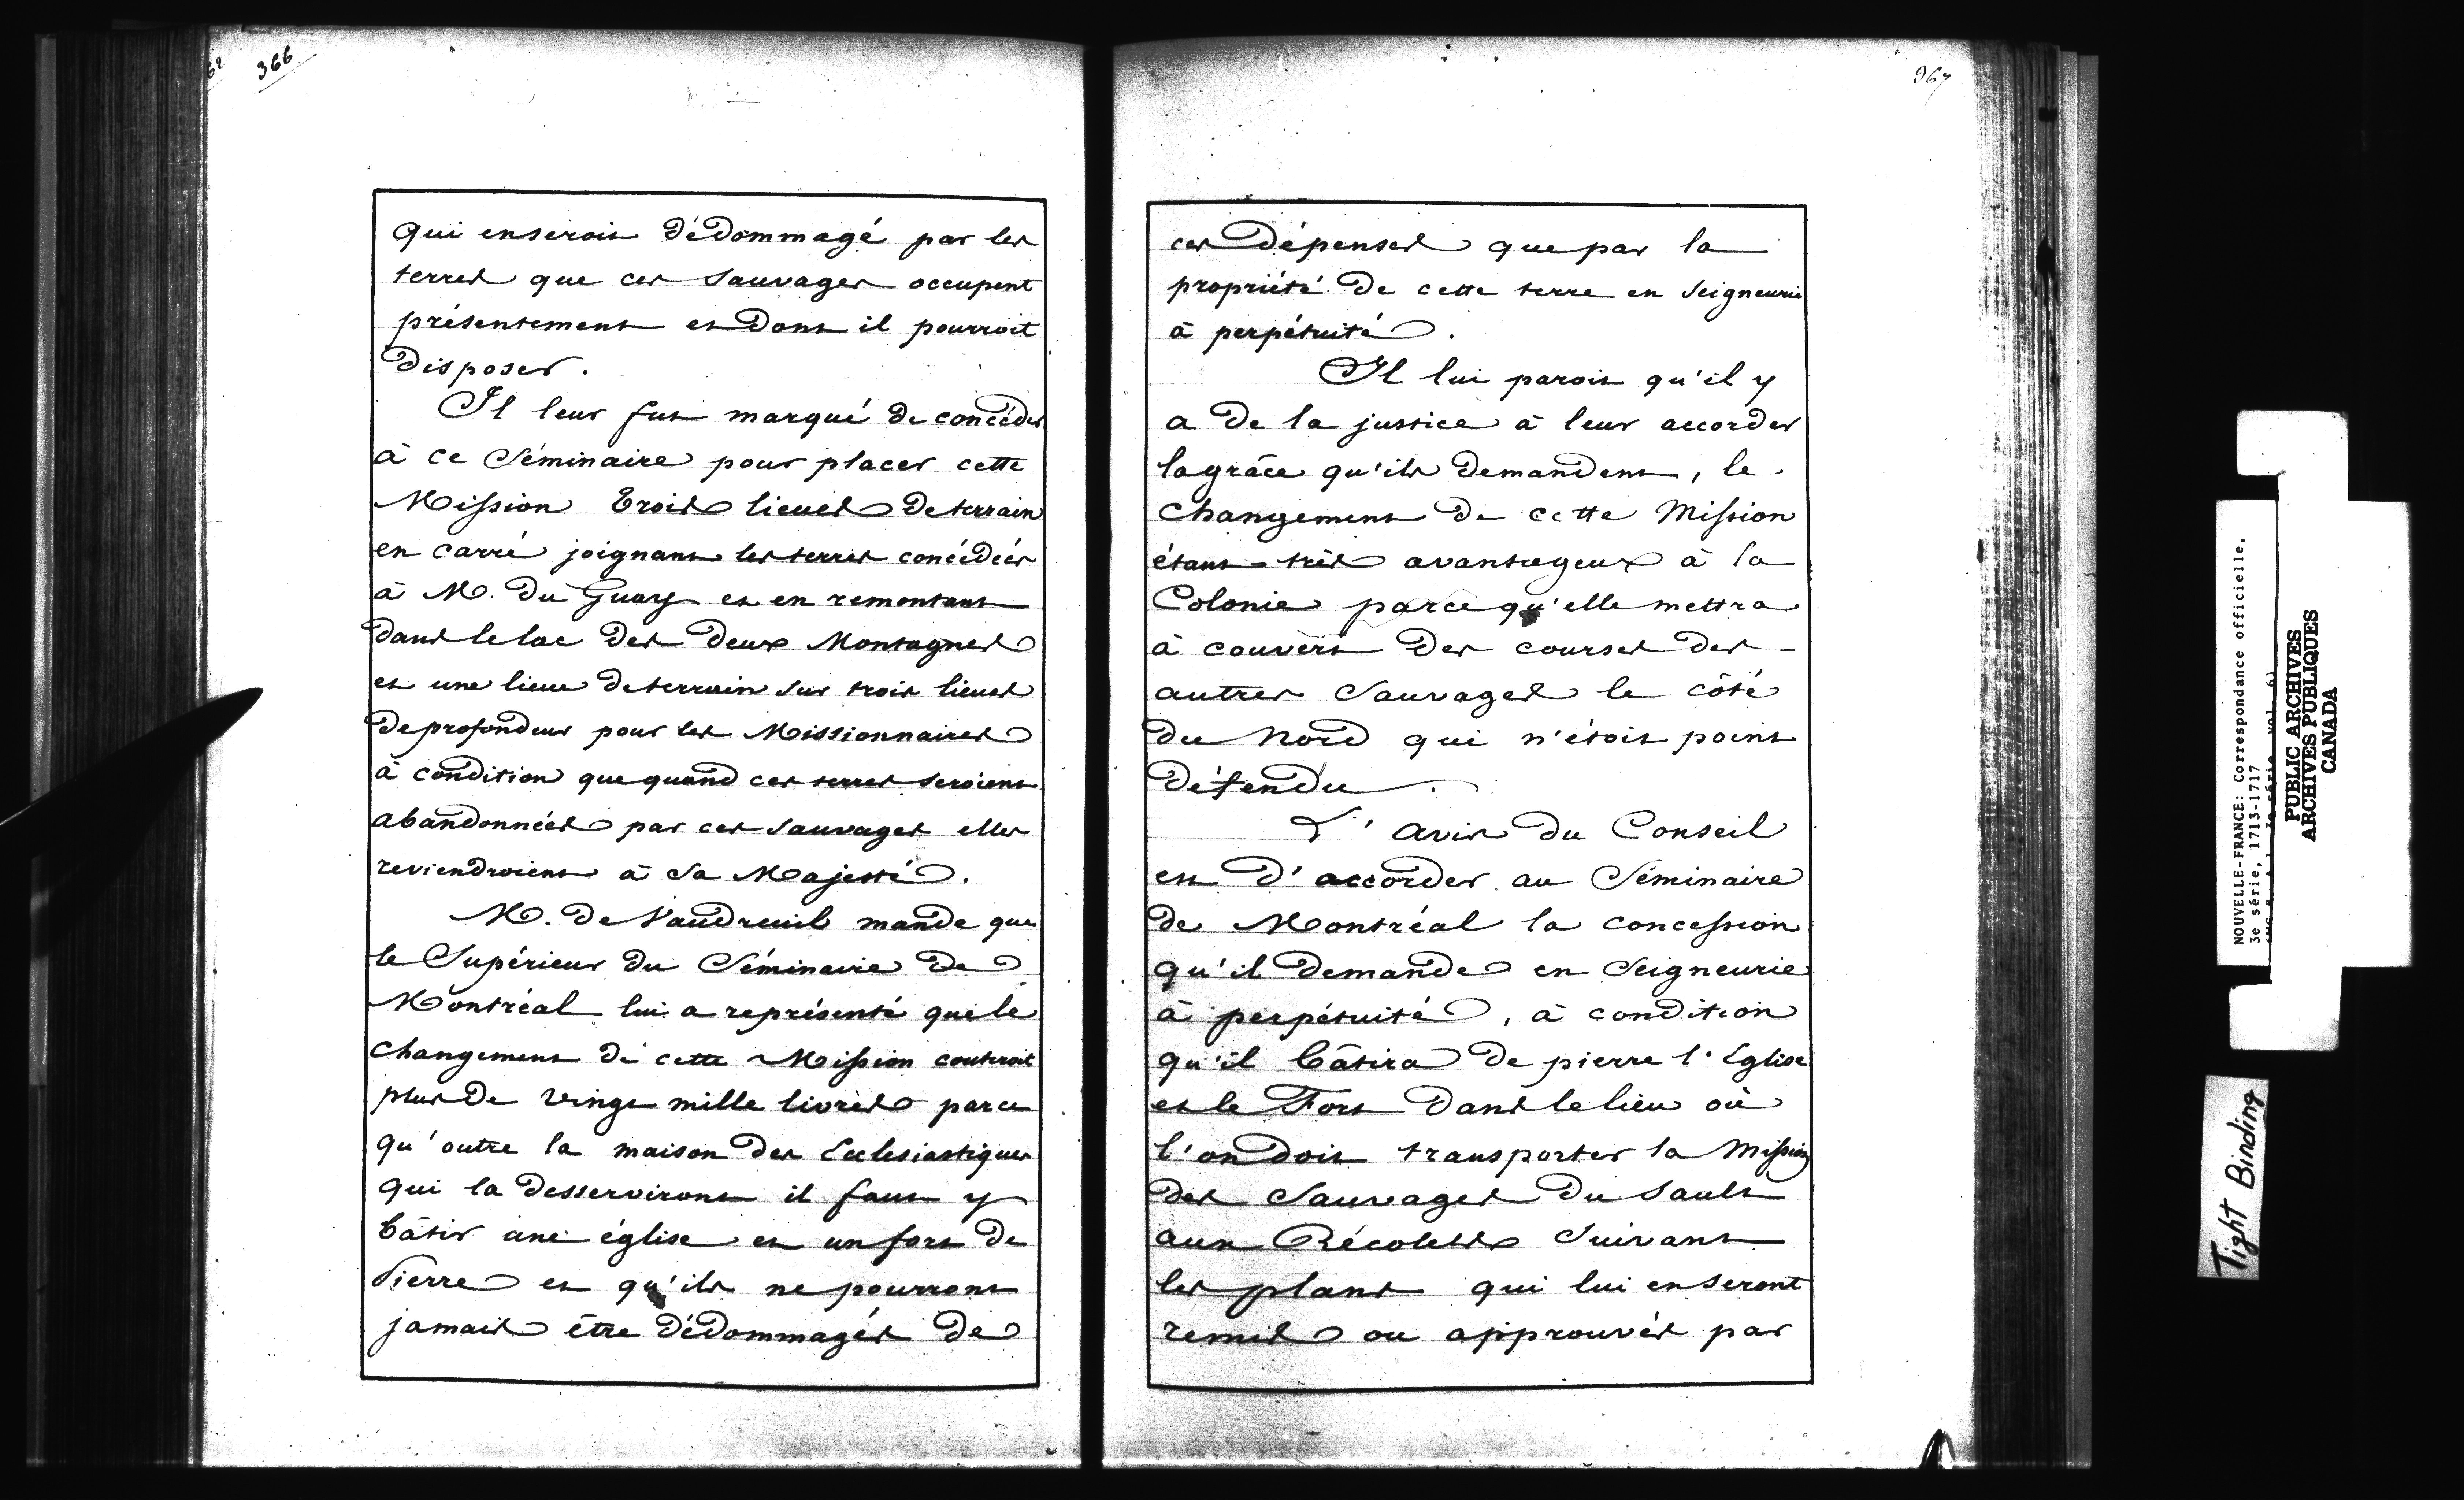 366
qui enseroit dédommagé par les
terres que ces Sauvages occupent
présentement et dont il pourroit
disposer.
Il leur fut marqué de concéder
à ce Séminaire pour placer cette
Mission trois lieues de terrain
en carré joignant les terres concédées
à M. du Guay et en remontant
dans le lac des deux Montagnes
et une lieue de terrain sur trois lieues
de profondeur pour les Missionnaires
à condition que quand ces terres seroient
abandonnées par ces Sauvages elles
reviendroient à Sa Majesté.
M. de Vaudreuil mande que
le Supérieur du Séminaire de
Montréal lui a représenté que le
changement de cette Mission couteroit
plus de vingt mille livres parce
qu'outre la maison des Ecclesiastiques
qui la desserviront il faut y
bâtir une église et un fort de
Pierre et qu'ils ne pourront
jamais être dédommagés de
367
ces dépenses que par la
propriété de cette terre en Seigneurie
à perpétuité.
Il lui paroit qu'il y
a de la justice à leur accorder
la grâce qu'ils demandent, le
changement de cette Mission
étant très avantageux à la
Colonie parce qu'elle mettra
à couvert des courses des
autres Sauvages le côté
du Nord qui n'étoit point
défendu.
L'avis du Conseil
est d'accorder au Séminaire
de Montréal la concession
qu'il demande en Seigneurie
à perpétuité, à condition
qu'il bâtira de pierre l'Eglise
et le Fort dans le lieu où
l'on doit transporter la Mission
des Sauvages du Sault
aux Récolets suivant
les plans qui lui en seront
remis ou approuvés par
NOUVELLE-FRANCE: Correspondance officielle,
3e série, 1713-1717
PUBLIC ARCHIVES
ARCHIVES PUBLIQUES
CANADA
Tight Binding